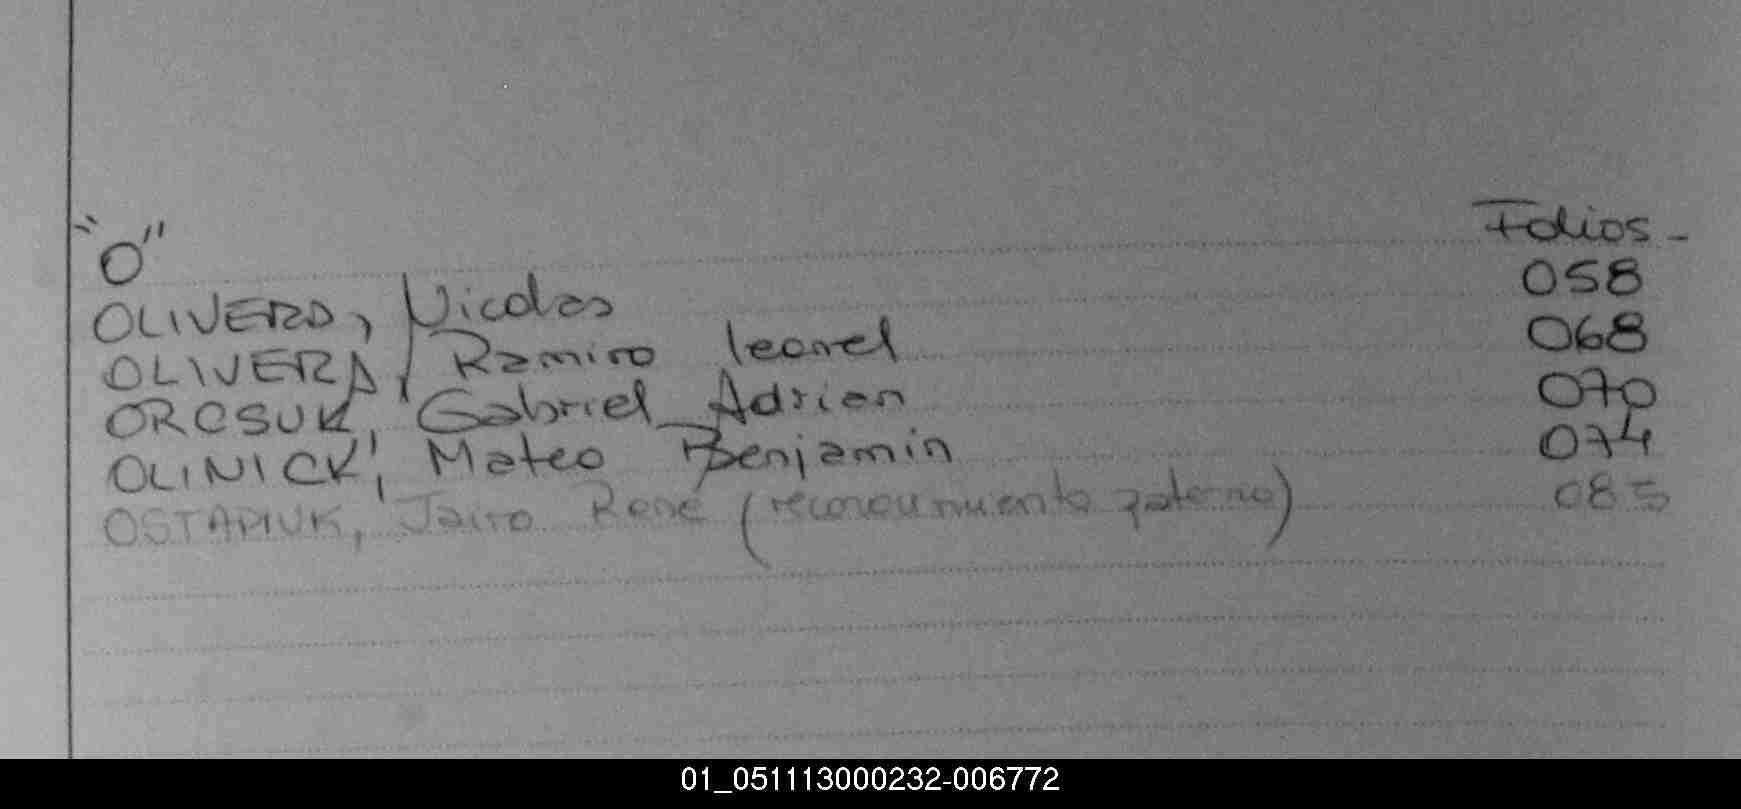 "O" Folios-
OLIVERA, Nicolas 058
OLIVERA, Ramiro leonel 068
ORCSUK, Gabriel Adrian 070
OLINICK, Mateo Benjamin 074
OSTAPIUK, Jairo René (reconocimiento paterno) 085
01_051113000232-006772